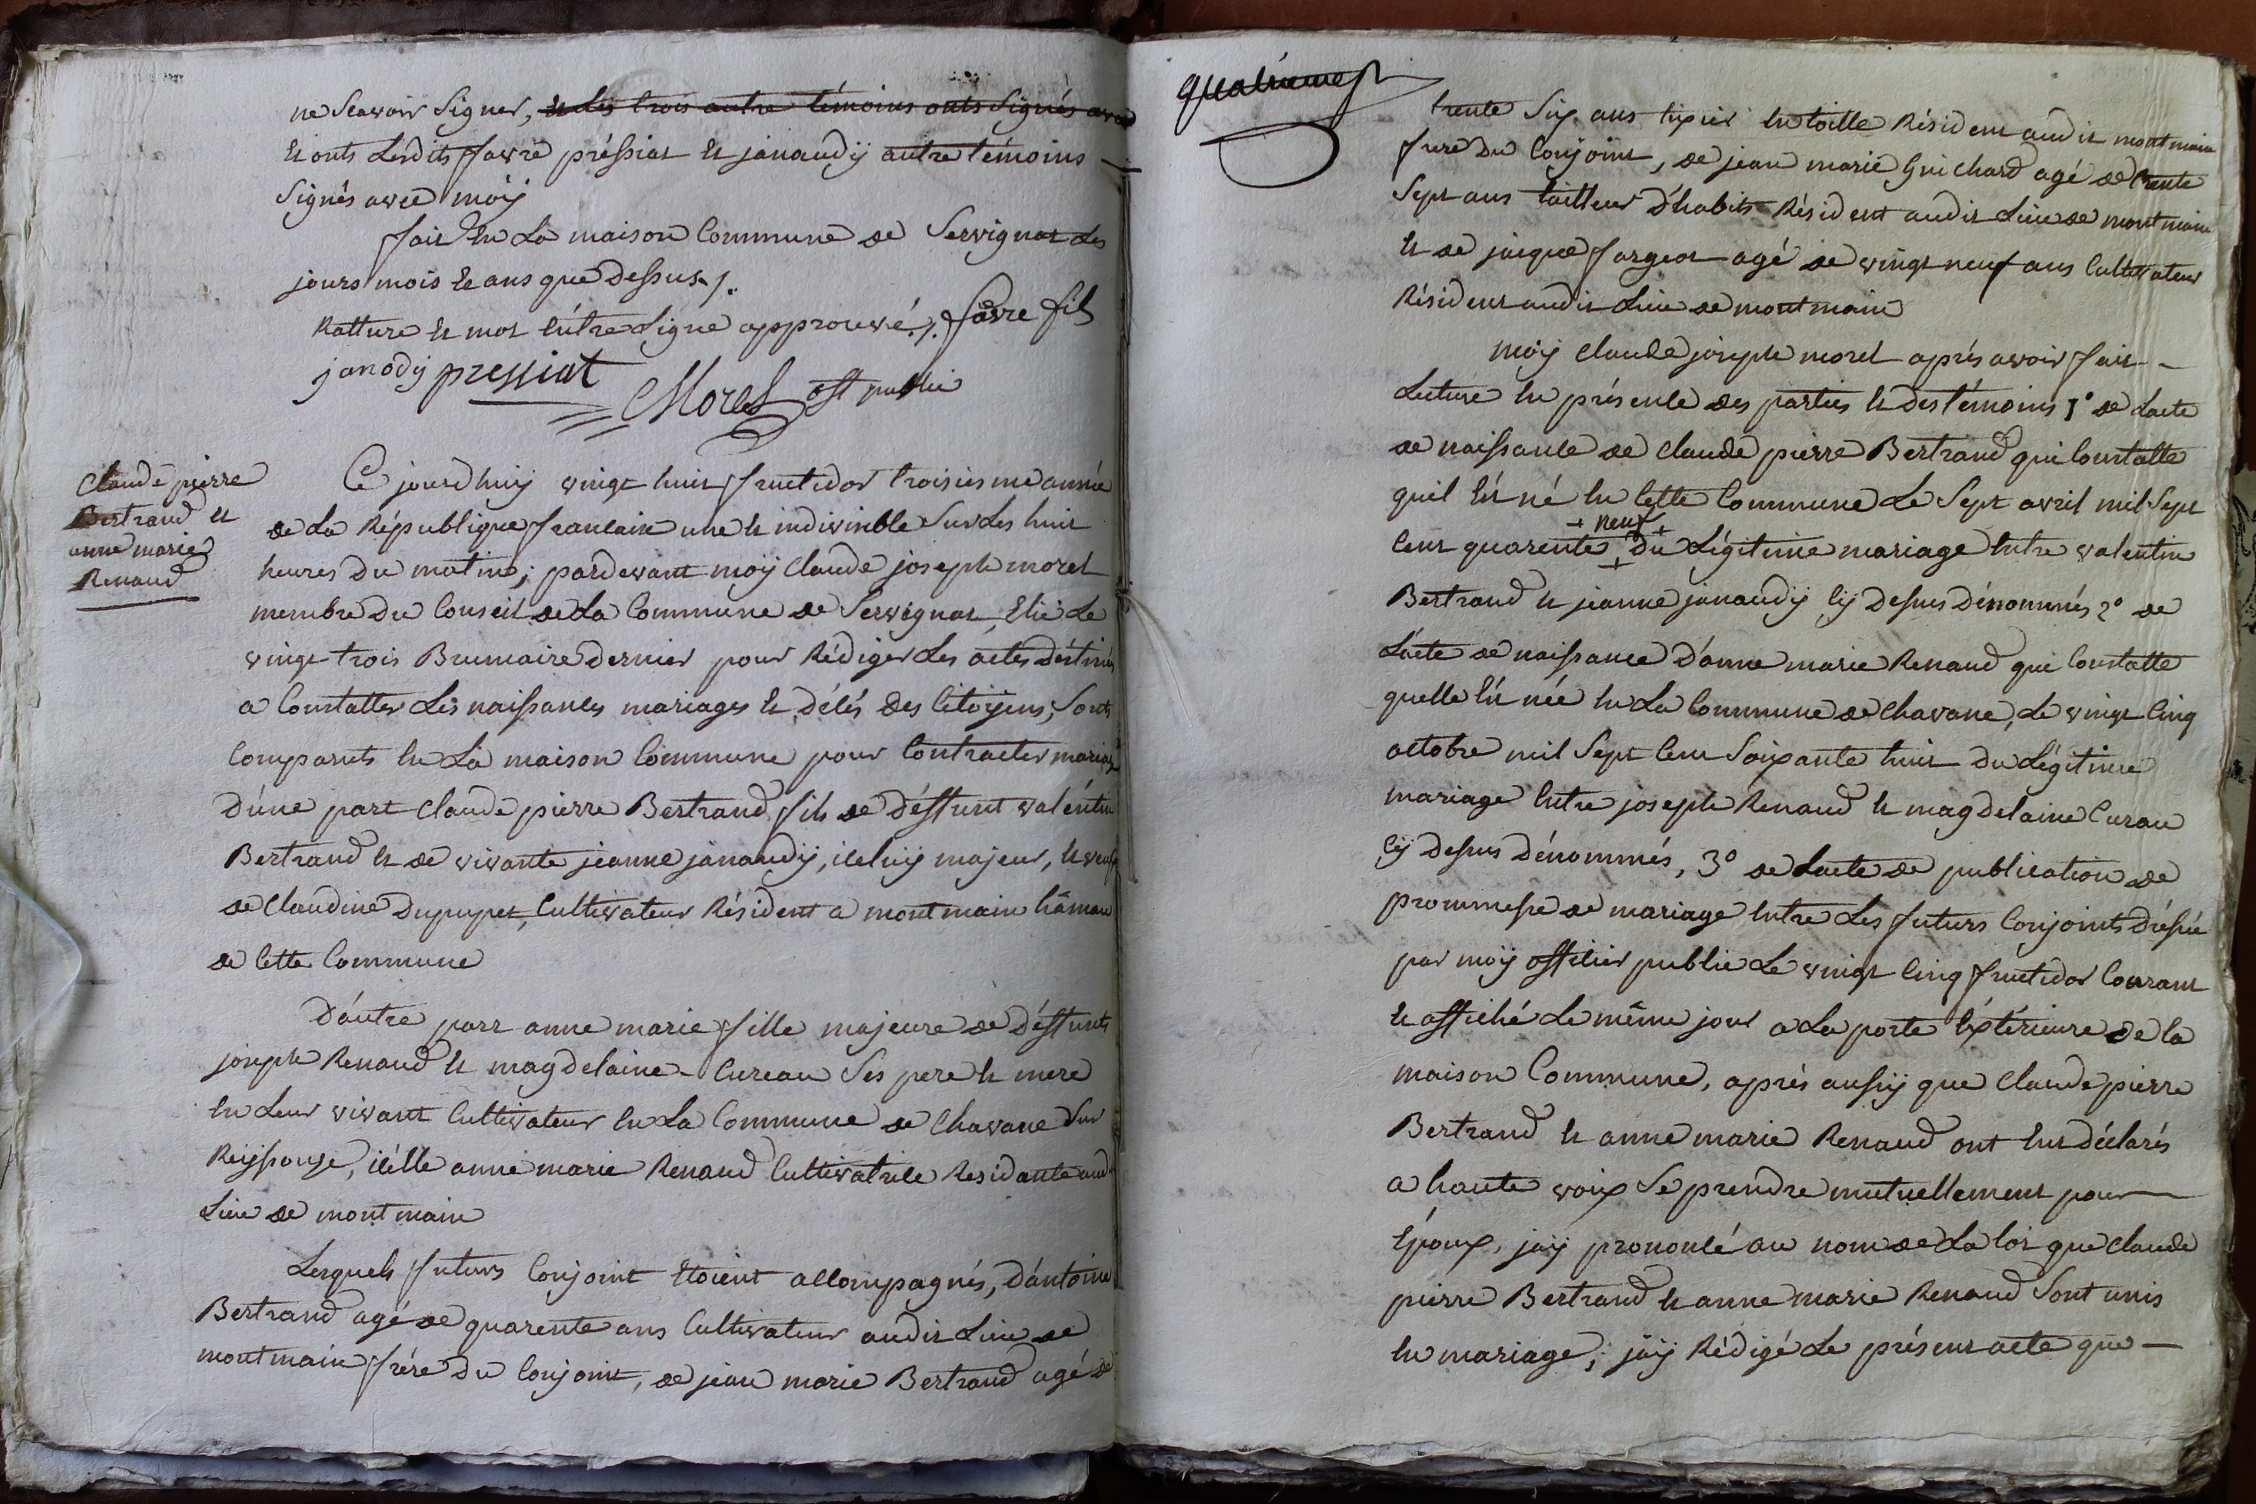 ne Scavoir Signer, et les trois autre témoins onts Signés avec
Et onts Lesdits favre préssiat Et janaudÿ autre témoins
Signés avec moÿ
fait En La maison Commune de Servignat Les
jours mois Et ans que Dessus ./.
Ratture Et mot Entre Ligne approuvé ./. favre fils
janody pressiat
CMorel off public
Claude pierre
Bertrand Et
anne marie
Renaud
Ce jourdhuÿ vingt huit fructidor troisieme année
de La République francaise une et indivisible Sur Les huit
heures Du matin, pardevant moÿ Claude joseph morel
membre Du Conseil de La Commune de Servignat, Elu Le
vingt trois Brumaire dernier pour Rédiger Les actes Déstinés
a Constatter Les naissances mariages Et Décés Des Citoÿens, Sonts
Comparuts En La maison Commune pour Contracter mariage
D'une part Claude pierre Bertrand fils de Déffunt valéntin
Bertrand Et de vivante jeanne janaudÿ, iceluÿ majeur, Et veuf
de Claudine Dupupet, Cultivateur Résident a montmain hâmau
de Cette Commune
D'autre part anne marie fille majeure de Déffunts
joseph Renaud Et magdelaine Cureau Ses pere Et mere
En Leur vivant Cultivateur En La Commune de Chavane Sur
Reÿssouze, icélle anne marie Renaud Cultivatrice Residante aud
Lieu de montmain
Lesquels futurs Conjoint Etoient accompagnés, D'antoine
Bertrand agé de quarente ans Cultivateur audit Lieu de
montmain frére Du Conjoint, de jean marie Bertrand agé de
quatrieme
trente Six ans tixier En toille Résident audit montmain
frere Du Conjoint, de jean marie Guichard agé de trente
Sept ans tailleur D'habits Résident audit Lieu de montmain
Et de jacque fargeot agé de vingt neuf ans Cultivateur
Résident audit Lieu de montmain
moÿ Claude joseph morel aprés avoir fait
Lecture En présence des parties Et des témoins 1° de Lacte
de naissance de Claude pierre Bertrand qui Constatte
quil Est né En Cette Commune Le Sept avril mil Sept
+ neuf +
Cent quarente + Du Légitime mariage Entre valentin
Bertrand Et jeanne janaudÿ Cÿ Dessus Dénommés 2° de
L'acte de naissance D'anne marie Renaud qui Constatte
quelle Est née En La Commune de Chavane, Le vingt Cinq
octobre mil Sept Cent Soixante huit Du Légitime
mariage Entre joseph Renaud Et magdelaine Curau
Cÿ Dessus Dénommés, 3° de Lacte de publication de
prommesse de mariage Entre Les futurs Conjoints Dréssé
par moÿ officier public Le vingt Cinq fructidor Courant
Et affiché Le même jour a La porte Extérieure de la
maison Commune, aprés aussÿ que Claude pierre
Bertrand Et anne marie Renaud ont Eut déclarés
a haute voix Se prendre mutuellement pour
Epoux, jaÿ prononcé au nom de La loi que Claude
pierre Bertrand Et anne marie Renaud Sont unis
En mariage, jaÿ Rédigé Le présent acte que